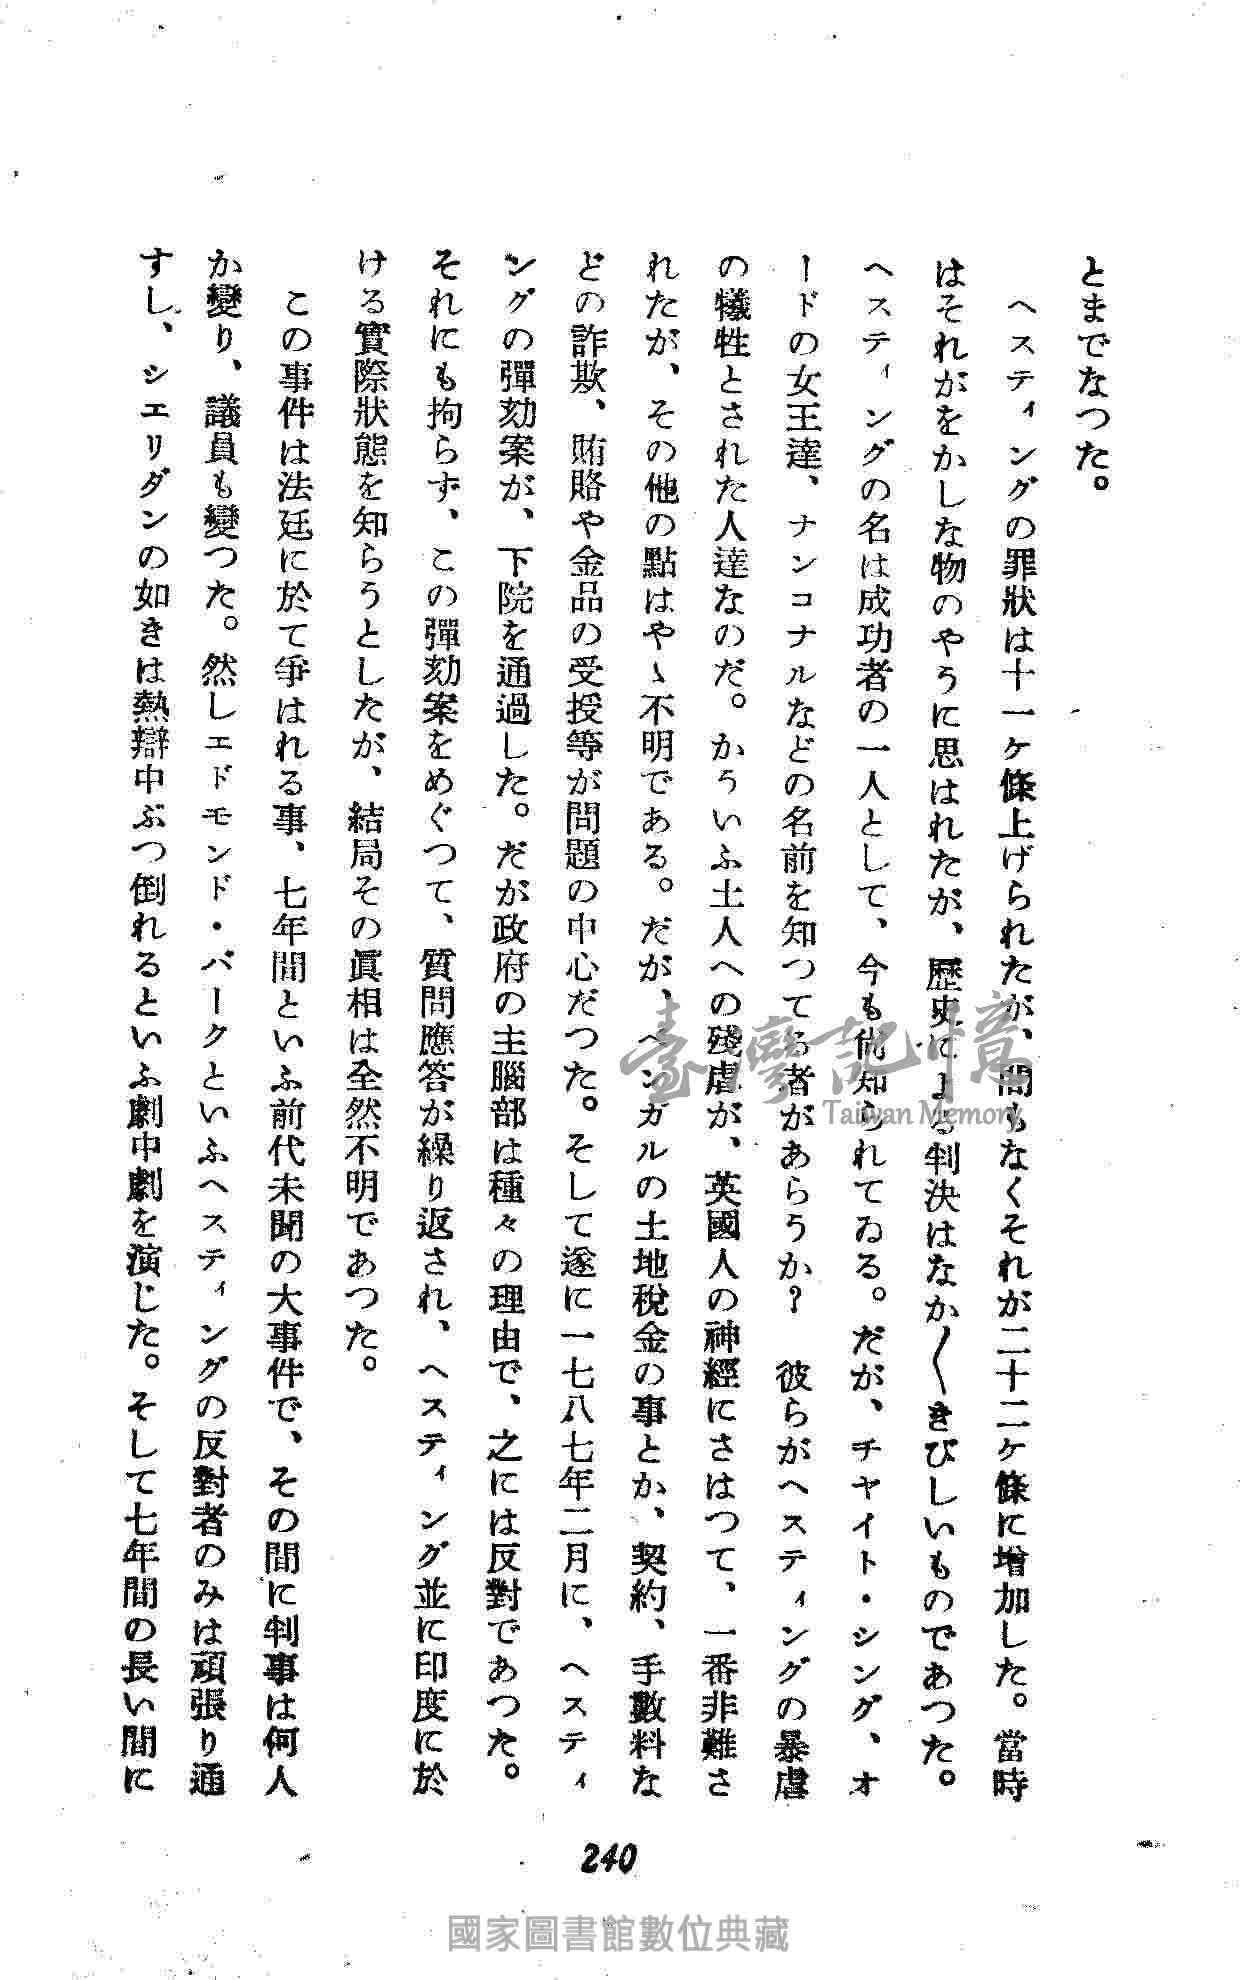 とまでなつた。
ヘスティングの罪狀は十一ケ條上げられたが、間もなくそれが二十二ケ條に增加した。當時
はそれがをかしな物のやうに思はれたが、歷史による判決はなか〳〵きびしいものであつた。
ヘスティングの名は成功者の一人として、今も尙知られてゐる。だが、チヤイト・シング、オ
ードの女王達、ナンコナルなどの名前を知つてる者があらうか？　彼らがヘスティングの暴虐
の犧牲とされた人達なのだ。かういふ土人への殘虐が、英國人の神經にさはつて、一番非難さ
れたが、その他の點はやゝ不明である。だが、ベンガルの土地稅金の事とか、契約、手數料な
どの詐欺、賄賂や金品の受授等が問題の中心だつた。そして遂に一七八七年二月に、ヘスティ
ングの彈劾案が、下院を通過した。だが政府の主腦部は種々の理由で、之には反對であつた。
それにも拘らず、この彈劾案をめぐつて、質問應答が繰り返され、ヘスティング並に印度に於
ける實際狀態を知らうとしたが、結局その眞相は全然不明であつた。
この事件は法廷に於て爭はれる事、七年間といふ前代未聞の大事件で、その間に判事は何人
か變り、議員も變つた。然しエドモンド・バークといふヘスティングの反對者のみは頑張り通
すし、シエリダンの如きは熱辯中ぶつ倒れるといふ劇中劇を演じた。そして七年間の長い間に
240
臺灣記憶
Taiwan Memory
國家圖書館數位典藏